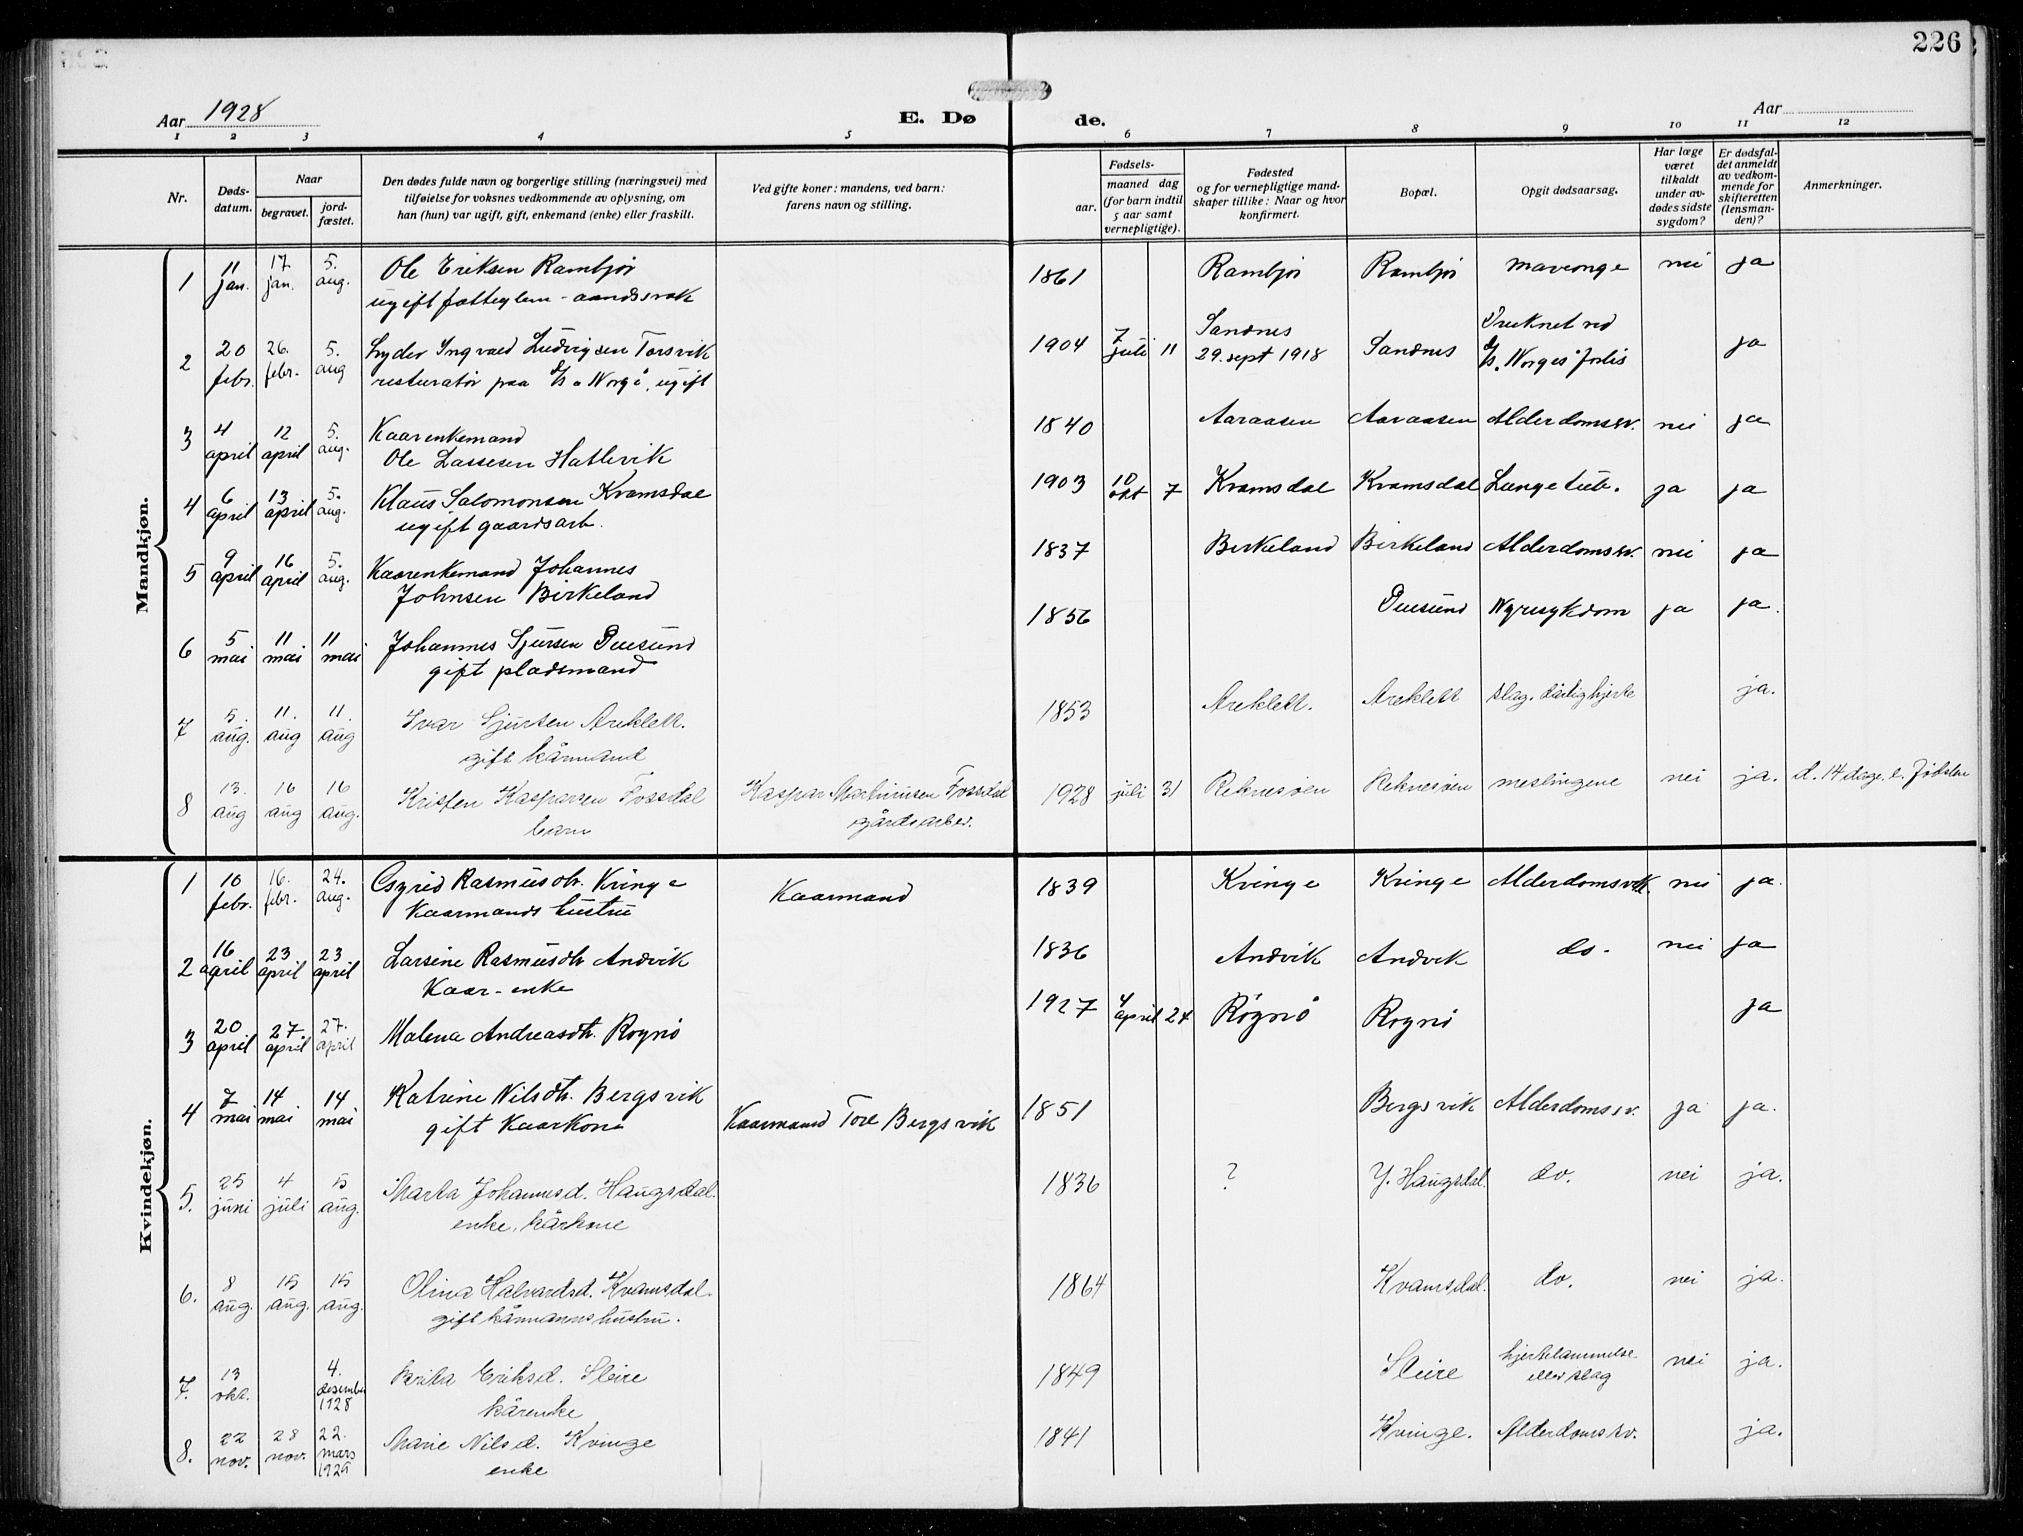 226
Aar 1928
E. Dø de.
Aar
1 2 3 4 5 6 7 8 9 10 11 12
Nr.
Døds-
datum.
Naar
begravet.
jord-
fæstet.
Den dødes fulde navn og borgerlige stilling (næringsvei) med
tilføielse for voksnes vedkommende av oplysning, om
han (hun) var ugift, gift, enkemand (enke) eller fraskilt.
Ved gifte koner: mandens, ved barn:
farens navn og stilling.
Fødsels-
aar.
maaned dag
(for barn indtil
5 aar samt
vernepligtige).
Fødested
og for vernepligtige mand-
skaper tillike: Naar og hvor
konfirmert.
Bopæl.
Opgit dødsaarsag.
Har læge
været
tilkaldt
under av-
dødes sidste
sygdom?
Er dødsfal-
det anmeldt
av vedkom-
mende for
skifteretten
(lensman-
den)?
Anmerkninger.
Mandkjøn.
1 11 jan. 17 jan. 5. aug. Ole Eriksen Rambjør 1861 Rambjør Rambjør nei ja
ugift
2 20 febr. 26. febr. 5. aug Lyder Ingvald Ludvigsen Torsvik 1904 7 juli 11 Sandnes Sandnes Druknet ved ja
29. sept 1918
paa D/s "Norge", ugift
D/s. "Norges" forlis
3 4 april 12 april 5. aug. Kaarenkemand 1840 Aaraasen Aaraasen Alderdomssv. nei ja
Ole Lassesen Hatlevik
4 6 april 13 april 5. aug. Klaus Salomonsen Kvamsdal 1903 10 okt 7 Kvamsdal Kvamsdal Lungetub. ja ja
ugift gaardsarb.
5 9 april 16 april 5. aug. Kaarenkemand Johannes 1837 Birkeland Birkeland Alderdomssv. nei ja
Johnsen Birkeland
6 5 mai 11 mai 11 mai Johannes Sjursen Duesund 1856 Duesund Nyresykdom ja ja.
gift pladsmand
7 5. aug. 11. aug 11. aug Ivar Sjursen Areklett. 1853 Areklett. Areklett slag. dårlig hjerte ja.
gift kårmand
8 13. aug 16 aug 16 aug. Kristen Kasparsen Fossdal Kaspar Martinusen Fossdal 1928 juli 31 Reknesøen Reknesøen meslingene nei ja. d. 14 dage e. fødslen
barn gårdsarber.
Kvindekjøn.
1 10 febr. 16. febr. 24. aug. Rasmusdtr. Kvinge Kaarmand 1839 Kvinge Kvinge Alderdomsvk. nei ja.
Kaarmands hustru
2 16 april 23 april 23 april Larsine Rasmusdtr Andvik 1836 Andvik Andvik do. nei ja
Kaar-enke
3 20 april 27. april 27. april Malena Andreasdtr. Rognø 1927 4 april 24 Rognø Rognø ja
4 7 mai 14 mai 14 mai Katrine Nilsdtr. Bergsvik Kaarmand Tore Bergsvik 1851 Bergsvik Alderdomssv. ja ja.
gift Kaarkone
5. 25 juni 4 juli 15 aug. Marta Johannesd. Haugsdal. 1836 ? Y. Haugsdal. do. nei ja.
enke, kårkone
6. 8 aug. 15 aug. 15 aug. Olina Halvardsd. Kvamsdal. 1864 Kvamsdal. do. nei ja.
gift kårmanns hustru.
7. 13 okt. 4. desember 1928 Brita Eriksd. Sleire 1849 Sleire hjertelammelse nei ja.
eller slag
kårenke
8. 22 nov. 28 nov. 22. mars 1929 Marie Nilsd. Kvinge 1841 Kvinge. Alderdomssv. ja.
enke